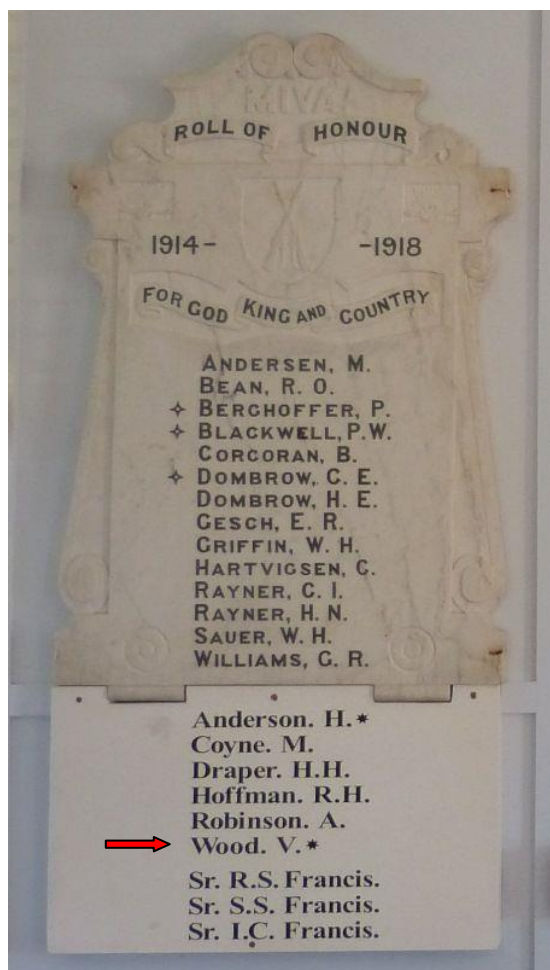 MIVA
ROLL OF HONOUR
1914- -1918
FOR GOD KING AND COUNTRY
ANDERSEN, M.
BEAN, R. O.
✧ BERGHOFFER, P.
✧ BLACKWELL, P.W.
CORCORAN, B.
✧ DOMBROW, C. E.
DOMBROW, H. E.
GESCH, E. R.
GRIFFIN, W. H.
HARTVIGSEN, G.
RAYNER, C. I.
RAYNER, H. N.
SAUER, W. H.
WILLIAMS, G. R.
Anderson. H.*
Coyne. M.
Draper. H.H.
Hoffman. R.H.
Robinson. A.
Wood. V.*
Sr. R.S. Francis.
Sr. S.S. Francis.
Sr. I.C. Francis.